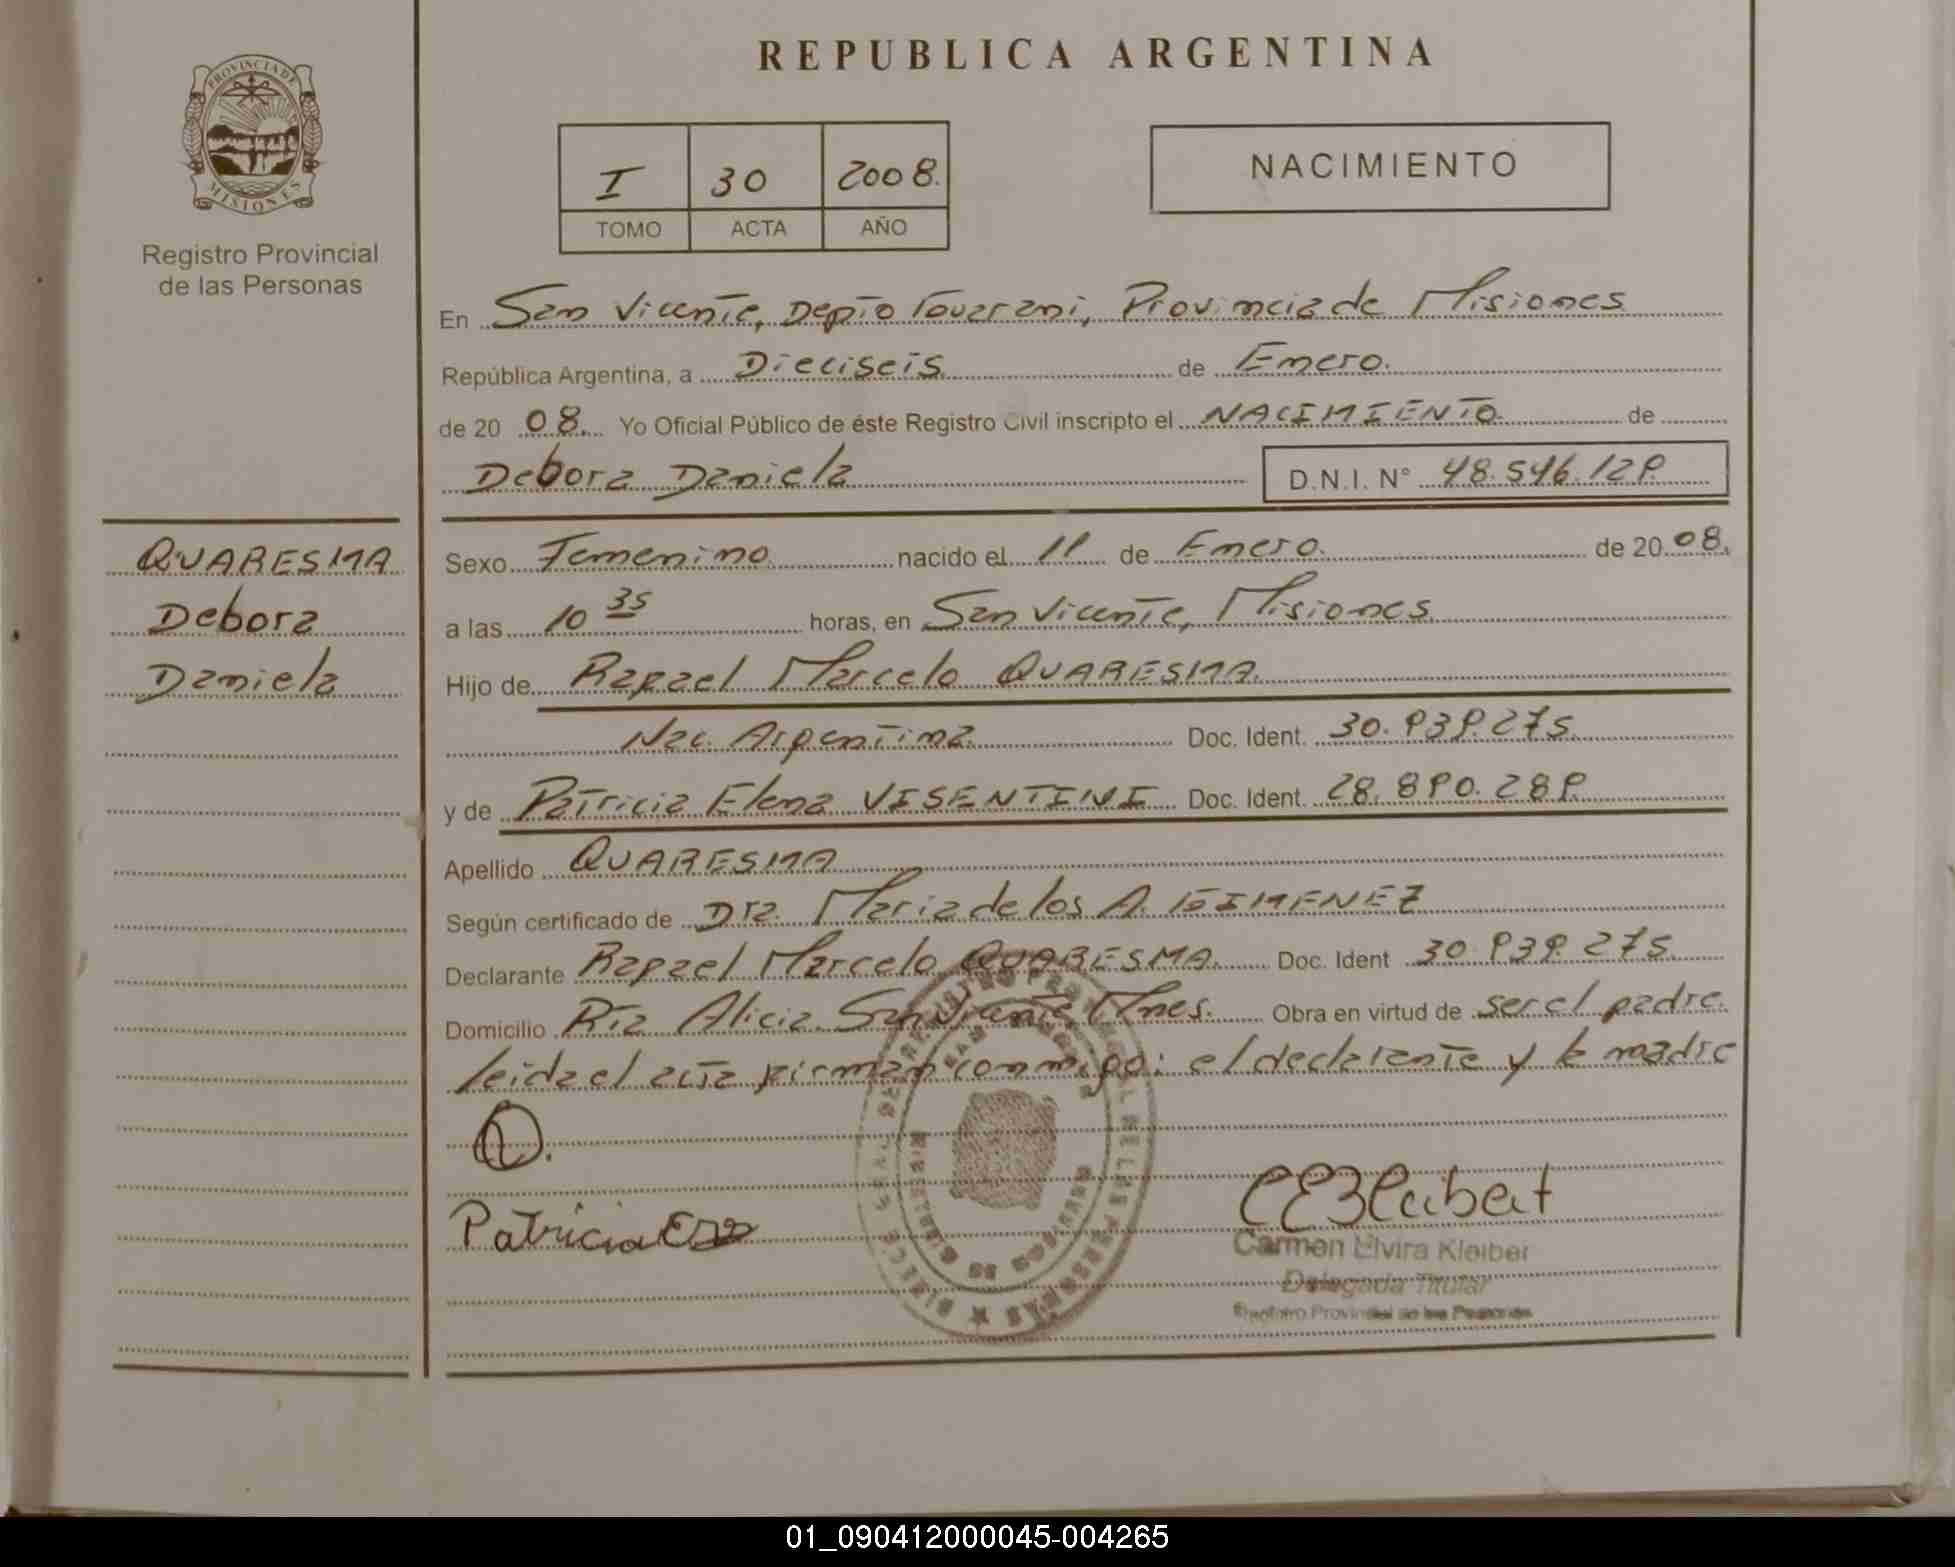 PROVINCIA DE
MISIONES
Registro Provincial
de las Personas
REPUBLICA ARGENTINA
I 30 2008.
TOMO ACTA AÑO
NACIMIENTO
En San Vicente, Depto Guarani, Provincia de Misiones
República Argentina, a Dieciseis de Enero.
de 20 08. Yo Oficial Público de éste Registro Civil inscripto el NACIMIENTO de
Debora Daniela D.N.I. N° 48.546.129.
QUARESMA
Debora
Daniela
Sexo Femenino nacido el 11 de Enero. de 20 08.
a las 10 35 horas, en San Vicente, Misiones.
Hijo de Rafael Marcelo QUARESMA.
Nac. Argentina Doc. Ident. 30.939.275.
y de Patricia Elena VISENTINI Doc. Ident. 28.890.289
Apellido QUARESMA
Según certificado de Dra. Maria de los A. GIMENEZ
Declarante Rafael Marcelo QUARESMA. Doc. Ident 30.939.275.
Domicilio Pia Alicia San Vicente Mnes. Obra en virtud de ser el padre.
leida el acta firman conmigo: el declarante y la madre
Patricia
Carmen Elvira Kleiber
Delegada Titular
Registro Provincial de las Personas
01_090412000045-004265